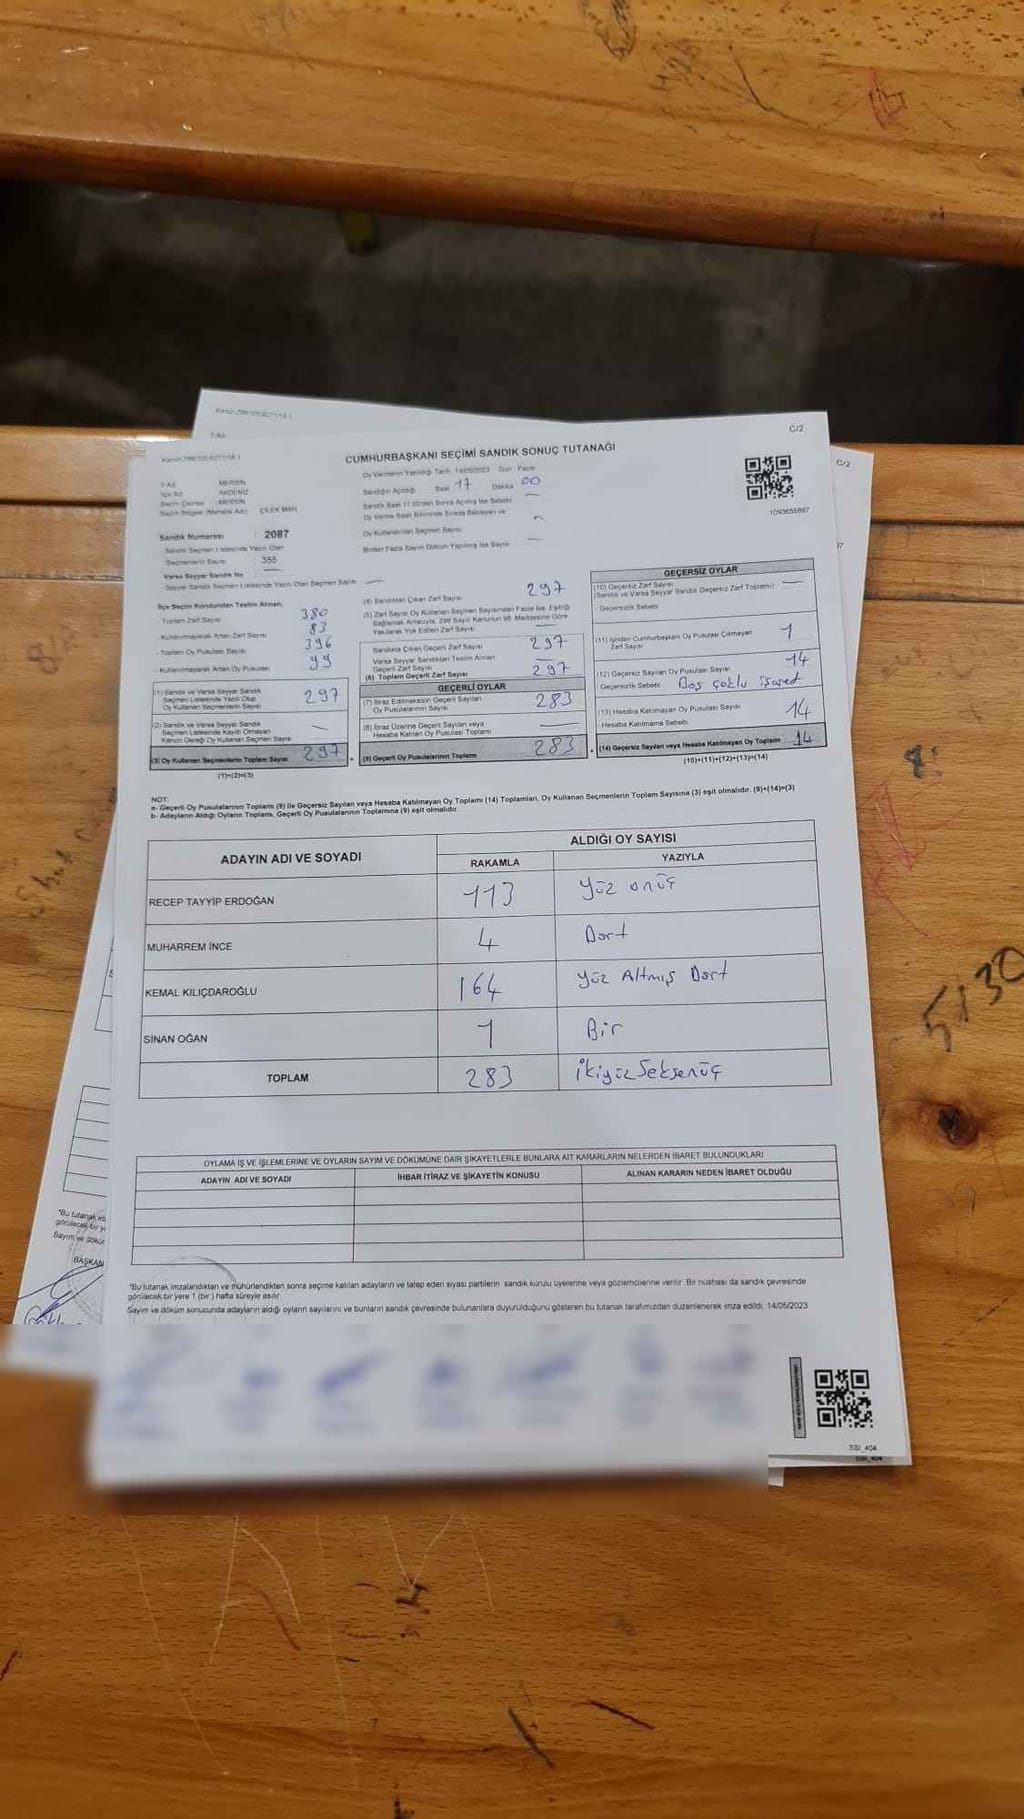 Kanun:298/105,6271/18-1
C/2
CUMHURBAŞKANI SEÇİMİ SANDIK SONUÇ TUTANAĞI
İl Adı : MERSİN
İlçe Adı : AKDENİZ
Seçim Çevresi : MERSİN
Seçim Bölgesi (Mahalle Adı) : ÇİLEK MAH.
Oy Vermenin Yapıldığı Tarih : 14/05/2023 Gün : Pazar
Sandığın Açıldığı Saat 17 Dakika 00
Sandık Saat 17.00'den Sonra Açılmış İse Sebebi
Oy Verme Saati Bitiminde Sırada Bekleyen ve
Oy Kullandırılan Seçmen Sayısı
Birden Fazla Sayım Döküm Yapılmış İse Sayısı
1093655897
Sandık Numarası : 2087
Sandık Seçmen Listesinde Yazılı Olan
Seçmenlerin Sayısı : 355
Varsa Seyyar Sandık No
Seyyar Sandık Seçmen Listesinde Yazılı Olan Seçmen Sayısı —
İlçe Seçim Kurulundan Teslim Alınan;
- Toplam Zarf Sayısı 380
- Kullanılmayarak Artan Zarf Sayısı 83
- Toplam Oy Pusulası Sayısı 396
- Kullanılmayarak Artan Oy Pusulası 99
(1) Sandık ve Varsa Seyyar Sandık
Seçmen Listesinde Yazılı Olup
Oy Kullanan Seçmenlerin Sayısı 297
(2) Sandık ve Varsa Seyyar Sandık
Seçmen Listesinde Kayıtlı Olmayan
Kanun Gereği Oy Kullanan Seçmen Sayısı —
(3) Oy Kullanan Seçmenlerin Toplam Sayısı 297
(1)+(2)=(3)
(4) Sandıktan Çıkan Zarf Sayısı 297
(5) Zarf Sayısı Oy Kullanan Seçmen Sayısından Fazla İse, Eşitliği
Sağlamak Amacıyla, 298 Sayılı Kanunun 98. Maddesine Göre
Yakılarak Yok Edilen Zarf Sayısı —
Sandıkta Çıkan Geçerli Zarf Sayısı 297
Varsa Seyyar Sandıktan Teslim Alınan
Geçerli Zarf Sayısı —
(6) Toplam Geçerli Zarf Sayısı 297
GEÇERLİ OYLAR
(7) İtiraz Edilmeksizin Geçerli Sayılan
Oy Pusulalarının Sayısı 283
(8) İtiraz Üzerine Geçerli Sayılan veya
Hesaba Katılan Oy Pusulası Toplamı —
(9) Geçerli Oy Pusulalarının Toplamı 283
GEÇERSİZ OYLAR
(10) Geçersiz Zarf Sayısı
(Sandık ve Varsa Seyyar Sandık Geçersiz Zarf Toplamı) —
- Geçersizlik Sebebi
(11) İçinden Cumhurbaşkanı Oy Pusulası Çıkmayan
Zarf Sayısı 1
(12) Geçersiz Sayılan Oy Pusulası Sayısı 14
- Geçersizlik Sebebi Boş çoklu işaret
(13) Hesaba Katılmayan Oy Pusulası Sayısı 14
- Hesaba Katılmama Sebebi
(14) Geçersiz Sayılan veya Hesaba Katılmayan Oy Toplamı 14
(10)+(11)+(12)+(13)=(14)
NOT:
a- Geçerli Oy Pusulalarının Toplamı (9) ile Geçersiz Sayılan veya Hesaba Katılmayan Oy Toplamı (14) Toplamları, Oy Kullanan Seçmenlerin Toplam Sayısına (3) eşit olmalıdır. (9)+(14)=(3)
b- Adayların Aldığı Oyların Toplamı, Geçerli Oy Pusulalarının Toplamına (9) eşit olmalıdır.
ADAYIN ADI VE SOYADI
ALDIĞI OY SAYISI
RAKAMLA YAZIYLA
RECEP TAYYİP ERDOĞAN 113 Yüz onüç
MUHARREM İNCE 4 Dort
KEMAL KILIÇDAROĞLU 164 Yüz Altmış Dort
SİNAN OĞAN 1 Bir
TOPLAM 283 İkiyüz Seksenüç
OYLAMA İŞ VE İŞLEMLERİNE VE OYLARIN SAYIM VE DÖKÜMÜNE DAİR ŞİKAYETLERLE BUNLARA AİT KARARLARIN NELERDEN İBARET BULUNDUKLARI
ADAYIN ADI VE SOYADI İHBAR İTİRAZ VE ŞİKAYETİN KONUSU ALINAN KARARIN NEDEN İBARET OLDUĞU
"Bu tutanak imzalandıktan ve mühürlendikten sonra seçime katılan adayların ve talep eden siyasi partilerin sandık kurulu üyelerine veya gözlemcilerine verilir. Bir nüshası da sandık çevresinde
görülecek bir yere 1 (bir) hafta süreyle asılır.
Sayım ve döküm sonucunda adayların aldığı oyların sayılarını ve bunların sandık çevresinde bulunanlara duyurulduğunu gösteren bu tutanak tarafımızdan düzenlenerek imza edildi. 14/05/2023
SSI_404
Kanun:298/105,6271/18-1
İl Adı
C/2
"Bu tutanak
görülecek bir y
Sayım ve dökü
BAŞKAN
SSI_404
5130